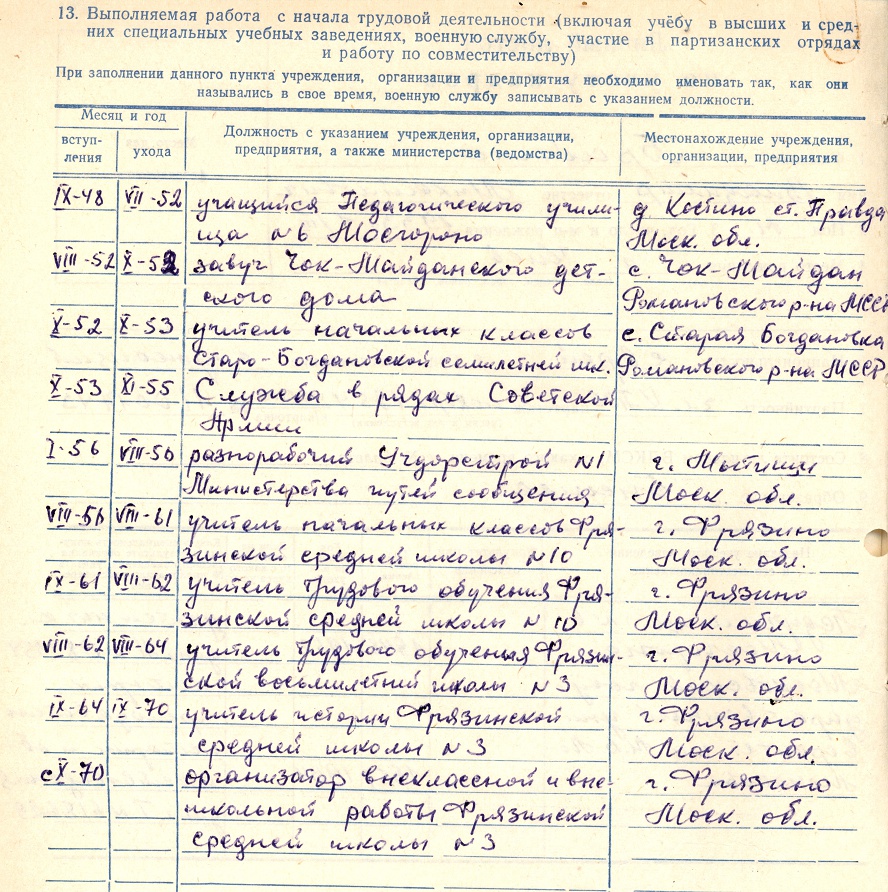 13. Выполняемая работа с начала трудовой деятельности (включая учёбу в высших и сред-
них специальных учебных заведениях, военную службу, участие в партизанских отрядах
и работу по совместительству)
При заполнении данного пункта учреждения, организации и предприятия необходимо именовать так, как они
назывались в свое время, военную службу записывать с указанием должности.
Месяц и год
вступ-
ления
ухода
Должность с указанием учреждения, организации,
предприятия, а также министерства (ведомства)
Местонахождение учреждения,
организации, предприятия
IX-48 VII-52 учащийся Педагогического учили- д. Костино ст. Правда
ща №6 Мосгороно Моск. обл.
VIII-52 X-52 завуч Чок-Майданского дет- с. Чок-Майдан
ского дома Романовского р-на МССР
X-52 X-53 учитель начальных классов с. Старая Богдановка
Старо-Богдановской семилетней шк. Романовского р-на МССР
X-53 XI-55 Служба в рядах Советской
Армии
I-56 VIII-56 разнорабочий Учдорстрой №1 г. Мытищи
Министерства путей сообщения Моск. обл.
VIII-56 VIII-61 учитель начальных классов Фря- г. Фрязино
зинской средней школы №10 Моск. обл.
IX-61 VIII-62 учитель трудового обучения Фря- г. Фрязино
зинской средней школы №10 Моск. обл.
VIII-62 VIII-64 учитель трудового обучения Фрязин- г. Фрязино
ской восьмилетней школы №3 Моск. обл.
IX-64 IX-70 учитель истории Фрязинской г. Фрязино
средней школы №3 Моск. обл.
с X-70 организатор внеклассной и вне- г. Фрязино
школьной работы Фрязинской Моск. обл.
средней школы №3